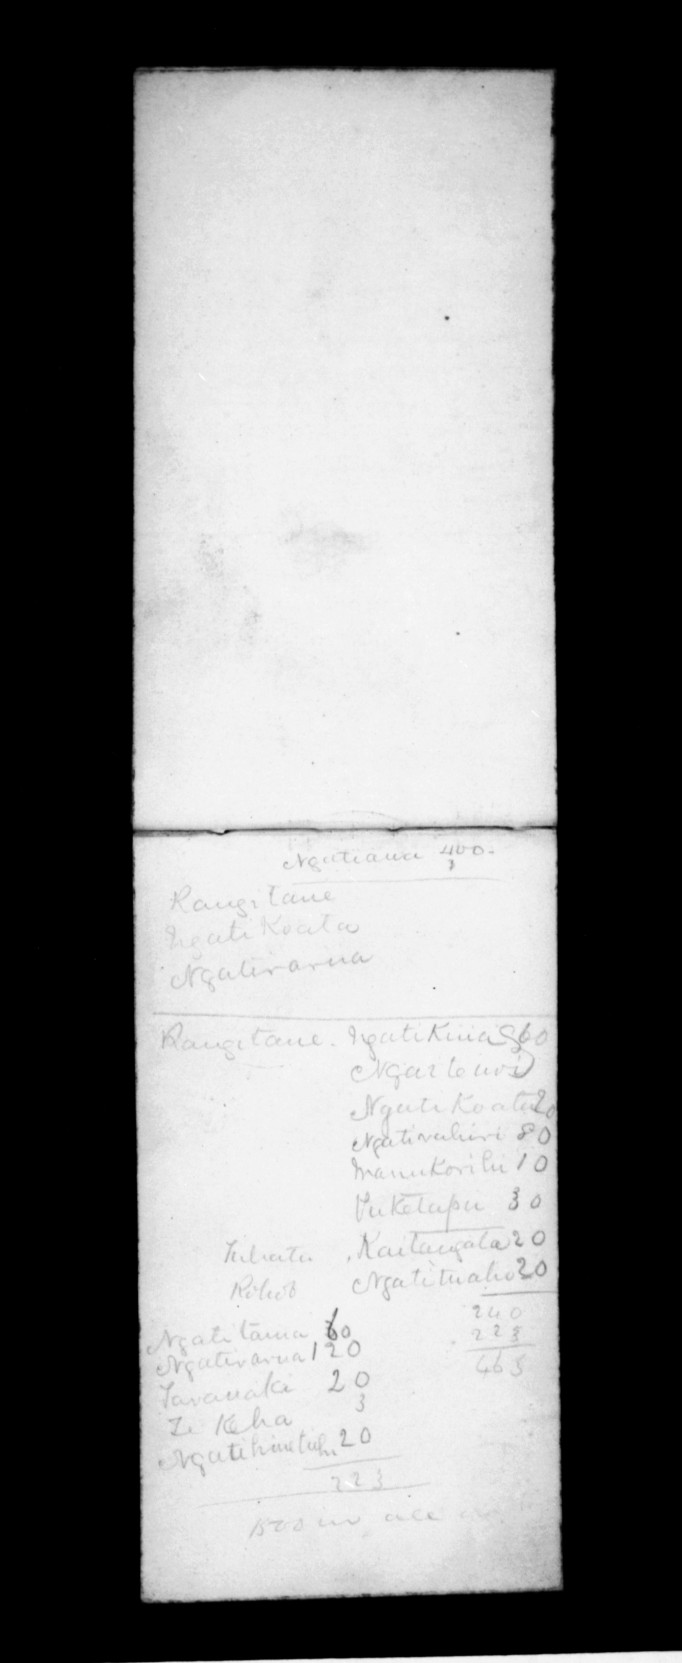 Ngatiawa 400.
3
Rangitane
Ngati Koata
Ngatirarua
Rangitane. Ngati Kuia 60
Ngai
Ngati Koata 20
Ngativahiri 80
Manukorihi 10
Puketapu 30
Kaitangata 20
Ngatituaho 20
240
223
463
Ngatitama 60
Ngatirarua 120
Taranaki 20
Te Keha 3
Ngatihinetuhi 20
223
1500 in all